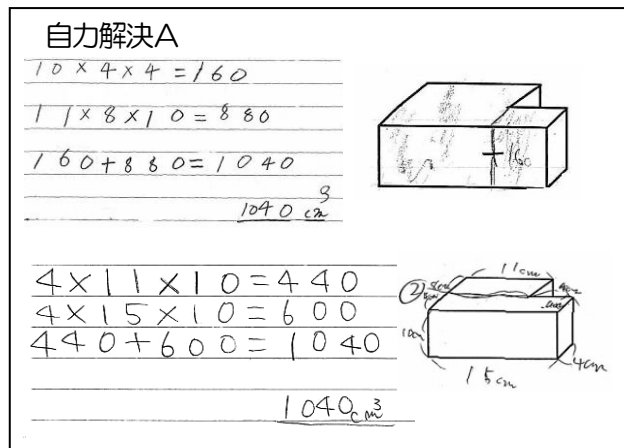 自力解決A
10×4×4=160
11×8×10=880
160+880=1040
1040 cm³
160
4×11×10=440
4×15×10=600
440+600=1040
1040cm³
②
11cm
10cm
15cm
4cm